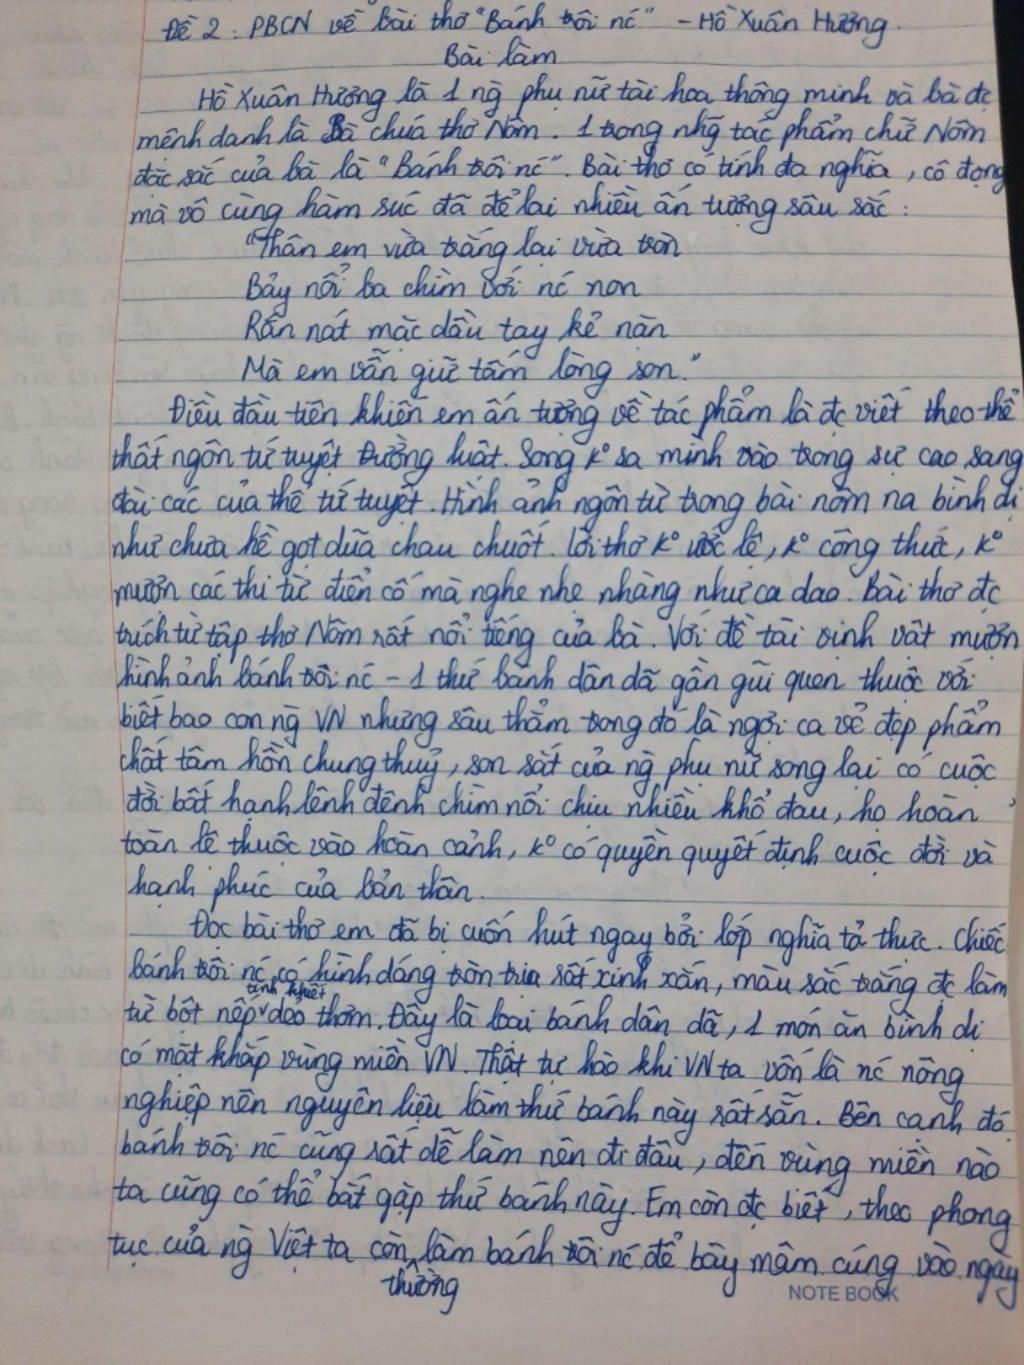 Đề 2: PBCN về bài thơ "Bánh trôi nc" - Hồ Xuân Hương.
Bài làm
Hồ Xuân Hương là 1 ng phụ nữ tài hoa thông minh và bà đc
mệnh danh là Bà chúa thơ Nôm. 1 trong nhg tác phẩm chữ Nôm
đặc sắc của bà là "Bánh trôi nc". Bài thơ có tính đa nghĩa, cô đọng
mà vô cùng hàm súc đã để lại nhiều ấn tượng sâu sắc:
"Thân em vừa trắng lại vừa tròn
Bảy nổi ba chìm với nc non
Rắn nát mặc dầu tay kẻ nặn
Mà em vẫn giữ tấm lòng son."
Điều đầu tiên khiến em ấn tượng về tác phẩm là đc viết theo thể
thất ngôn tứ tuyệt Đường luật. Song ko sa mình vào trong sự cao sang
đài các của thể tứ tuyệt. Hình ảnh ngôn từ trong bài nôm na bình dị
như chưa hề gọt dũa chau chuốt. Lời thơ ko ước lệ, ko công thức, ko
mượn các thi từ điển cố mà nghe nhẹ nhàng như ca dao. Bài thơ đc
trích từ tập thơ Nôm rất nổi tiếng của bà. Với đề tài vịnh vật mượn
hình ảnh bánh trôi nc - 1 thứ bánh dân dã gần gũi quen thuộc với
biết bao con ng VN nhưng sâu thẳm trong đó là ngợi ca vẻ đẹp phẩm
chất tâm hồn chung thuỷ, son sắt của ng phụ nữ song lại có cuộc
đời bất hạnh lênh đênh chìm nổi chịu nhiều khổ đau, họ hoàn
toàn lệ thuộc vào hoàn cảnh, ko có quyền quyết định cuộc đời và
hạnh phúc của bản thân.
Đọc bài thơ em đã bị cuốn hút ngay bởi lớp nghĩa tả thực. Chiếc
bánh trôi nc có hình dáng tròn trịa rất xinh xắn, màu sắc trắng đc làm
từ bột nếp tinh khiết dẻo thơm. Đây là loại bánh dân dã, 1 món ăn bình dị
có mặt khắp vùng miền VN. Thật tự hào khi VN ta vốn là nc nông
nghiệp nên nguyên liệu làm thứ bánh này rất sẵn. Bên cạnh đó
bánh trôi nc cũng rất dễ làm nên đi đâu, đến vùng miền nào
ta cũng có thể bắt gặp thứ bánh này. Em còn đc biết, theo phong
tục của ng Việt ta còn thường làm bánh trôi nc để bày mâm cúng vào ngày
NOTE BOOK